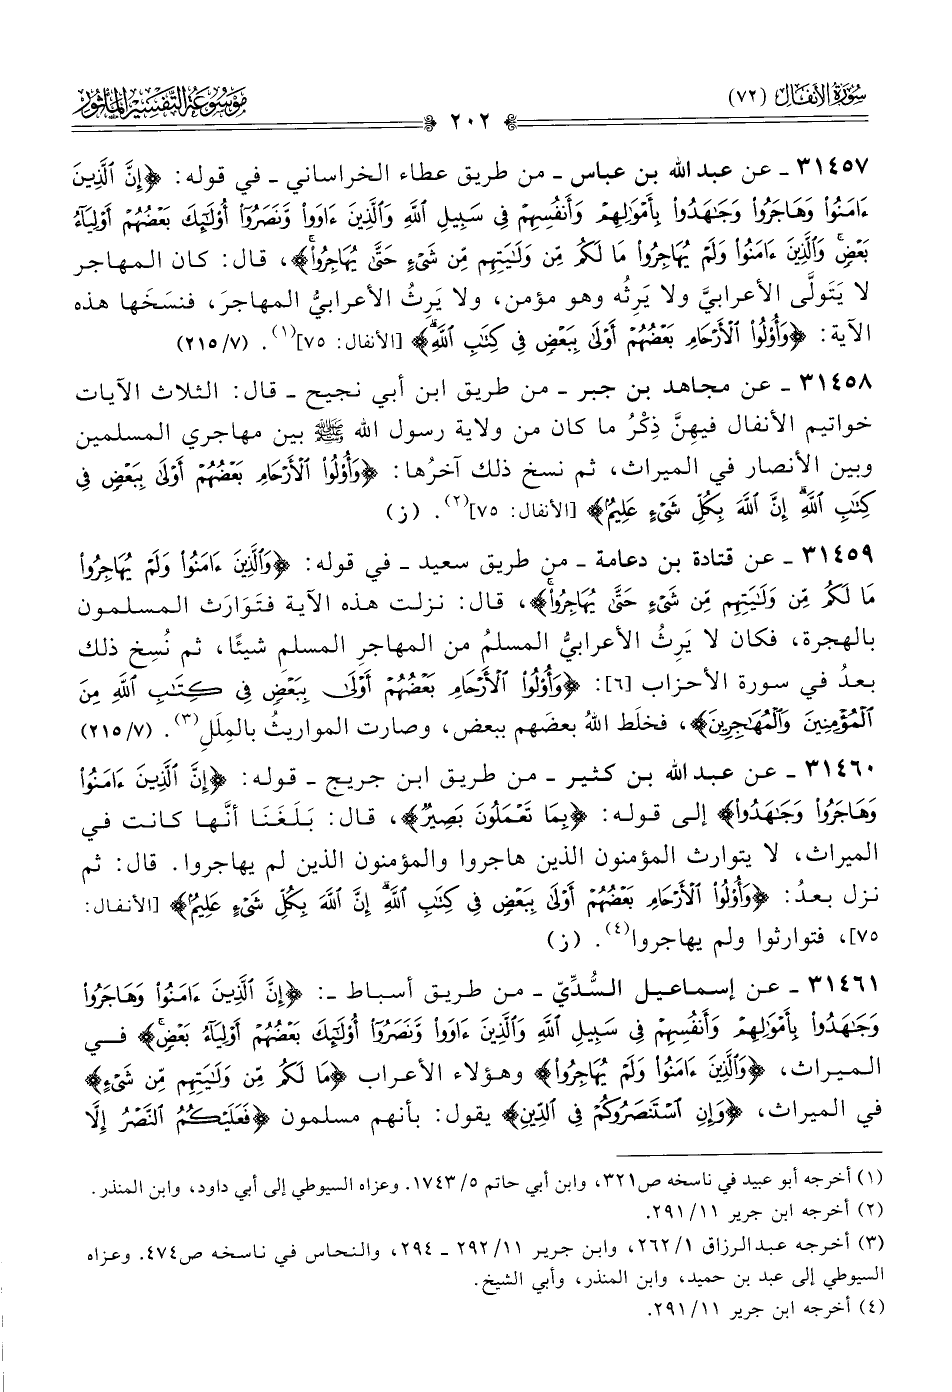 سورة الأنفال (٧٢)
٢٠٢
موسوعة التفسير المأثور
٣١٤٥٧ ـ عن عبد الله بن عباس ـ من طريق عطاء الخراساني ـ في قوله: ﴿إِنَّ ٱلَّذِينَ
ءَامَنُوا۟ وَهَاجَرُوا۟ وَجَٰهَدُوا۟ بِأَمْوَٰلِهِمْ وَأَنفُسِهِمْ فِى سَبِيلِ ٱللَّهِ وَٱلَّذِينَ ءَاوَوا۟ وَّنَصَرُوٓا۟ أُو۟لَٰٓئِكَ بَعْضُهُمْ أَوْلِيَآءُ
بَعْضٍۚ وَٱلَّذِينَ ءَامَنُوا۟ وَلَمْ يُهَاجِرُوا۟ مَا لَكُم مِّن وَلَٰيَتِهِم مِّن شَىْءٍ حَتَّىٰ يُهَاجِرُوا۟ۚ﴾، قال: كان المهاجر
لا يَتَولَّى الأعرابيَّ ولا يَرِثُه وهو مؤمن، ولا يَرِثُ الأعرابيُّ المهاجرَ، فنسَخَها هذه
الآية: ﴿وَأُو۟لُوا۟ ٱلْأَرْحَامِ بَعْضُهُمْ أَوْلَىٰ بِبَعْضٍ فِى كِتَٰبِ ٱللَّهِۗ﴾ [الأنفال: ٧٥](١). (٧/ ٢١٥)
٣١٤٥٨ ـ عن مجاهد بن جبر ـ من طريق ابن أبي نجيح ـ قال: الثلاث الآيات
خواتيم الأنفال فيهنَّ ذِكْرُ ما كان من ولاية رسول الله ﷺ بين مهاجري المسلمين
وبين الأنصار في الميراث، ثم نسخ ذلك آخرُها: ﴿وَأُو۟لُوا۟ ٱلْأَرْحَامِ بَعْضُهُمْ أَوْلَىٰ بِبَعْضٍ فِى
كِتَٰبِ ٱللَّهِۗ إِنَّ ٱللَّهَ بِكُلِّ شَىْءٍ عَلِيمٌۢ﴾ [الأنفال: ٧٥](٢). (ز)
٣١٤٥٩ ـ عن قتادة بن دعامة ـ من طريق سعيد ـ في قوله: ﴿وَٱلَّذِينَ ءَامَنُوا۟ وَلَمْ يُهَاجِرُوا۟
مَا لَكُم مِّن وَلَٰيَتِهِم مِّن شَىْءٍ حَتَّىٰ يُهَاجِرُوا۟ۚ﴾، قال: نزلت هذه الآية فتَوَارَث المسلمون
بالهجرة، فكان لا يَرِثُ الأعرابيُّ المسلمُ من المهاجرِ المسلمِ شيئًا، ثم نُسِخ ذلك
بعدُ في سورة الأحزاب [٦]: ﴿وَأُو۟لُوا۟ ٱلْأَرْحَامِ بَعْضُهُمْ أَوْلَىٰ بِبَعْضٍ فِى كِتَٰبِ ٱللَّهِ مِنَ
ٱلْمُؤْمِنِينَ وَٱلْمُهَٰجِرِينَ﴾، فخلَط اللهُ بعضَهم ببعض، وصارت المواريثُ بالمِلَلِ(٣). (٧/ ٢١٥)
٣١٤٦٠ ـ عن عبد الله بن كثير ـ من طريق ابن جريج ـ قوله: ﴿إِنَّ ٱلَّذِينَ ءَامَنُوا۟
وَهَاجَرُوا۟ وَجَٰهَدُوا۟﴾ إلى قوله: ﴿بِمَا تَعْمَلُونَ بَصِيرٌ﴾، قال: بَلَغَنَا أنَّها كانت في
الميراث، لا يتوارث المؤمنون الذين هاجروا والمؤمنون الذين لم يهاجروا. قال: ثم
نزل بعدُ: ﴿وَأُو۟لُوا۟ ٱلْأَرْحَامِ بَعْضُهُمْ أَوْلَىٰ بِبَعْضٍ فِى كِتَٰبِ ٱللَّهِۗ إِنَّ ٱللَّهَ بِكُلِّ شَىْءٍ عَلِيمٌۢ﴾ [الأنفال:
٧٥]، فتوارثوا ولم يهاجروا(٤). (ز)
٣١٤٦١ ـ عن إسماعيل السُّدِّيّ ـ من طريق أسباط ـ: ﴿إِنَّ ٱلَّذِينَ ءَامَنُوا۟ وَهَاجَرُوا۟
وَجَٰهَدُوا۟ بِأَمْوَٰلِهِمْ وَأَنفُسِهِمْ فِى سَبِيلِ ٱللَّهِ وَٱلَّذِينَ ءَاوَوا۟ وَّنَصَرُوٓا۟ أُو۟لَٰٓئِكَ بَعْضُهُمْ أَوْلِيَآءُ بَعْضٍۚ﴾ في
الميراث، ﴿وَٱلَّذِينَ ءَامَنُوا۟ وَلَمْ يُهَاجِرُوا۟﴾ وهؤلاء الأعراب ﴿مَا لَكُم مِّن وَلَٰيَتِهِم مِّن شَىْءٍ﴾
في الميراث، ﴿وَإِنِ ٱسْتَنصَرُوكُمْ فِى ٱلدِّينِ﴾ يقول: بأنهم مسلمون ﴿فَعَلَيْكُمُ ٱلنَّصْرُ إِلَّا
(١) أخرجه أبو عبيد في ناسخه ص٣٢١، وابن أبي حاتم ٥/ ١٧٤٣. وعزاه السيوطي إلى أبي داود، وابن المنذر.
(٢) أخرجه ابن جرير ١١/ ٢٩١.
(٣) أخرجه عبد الرزاق ١/ ٢٦٢، وابن جرير ١١/ ٢٩٢ ـ ٢٩٤، والنحاس في ناسخه ص٤٧٤. وعزاه
السيوطي إلى عبد بن حميد، وابن المنذر، وأبي الشيخ.
(٤) أخرجه ابن جرير ١١/ ٢٩١.